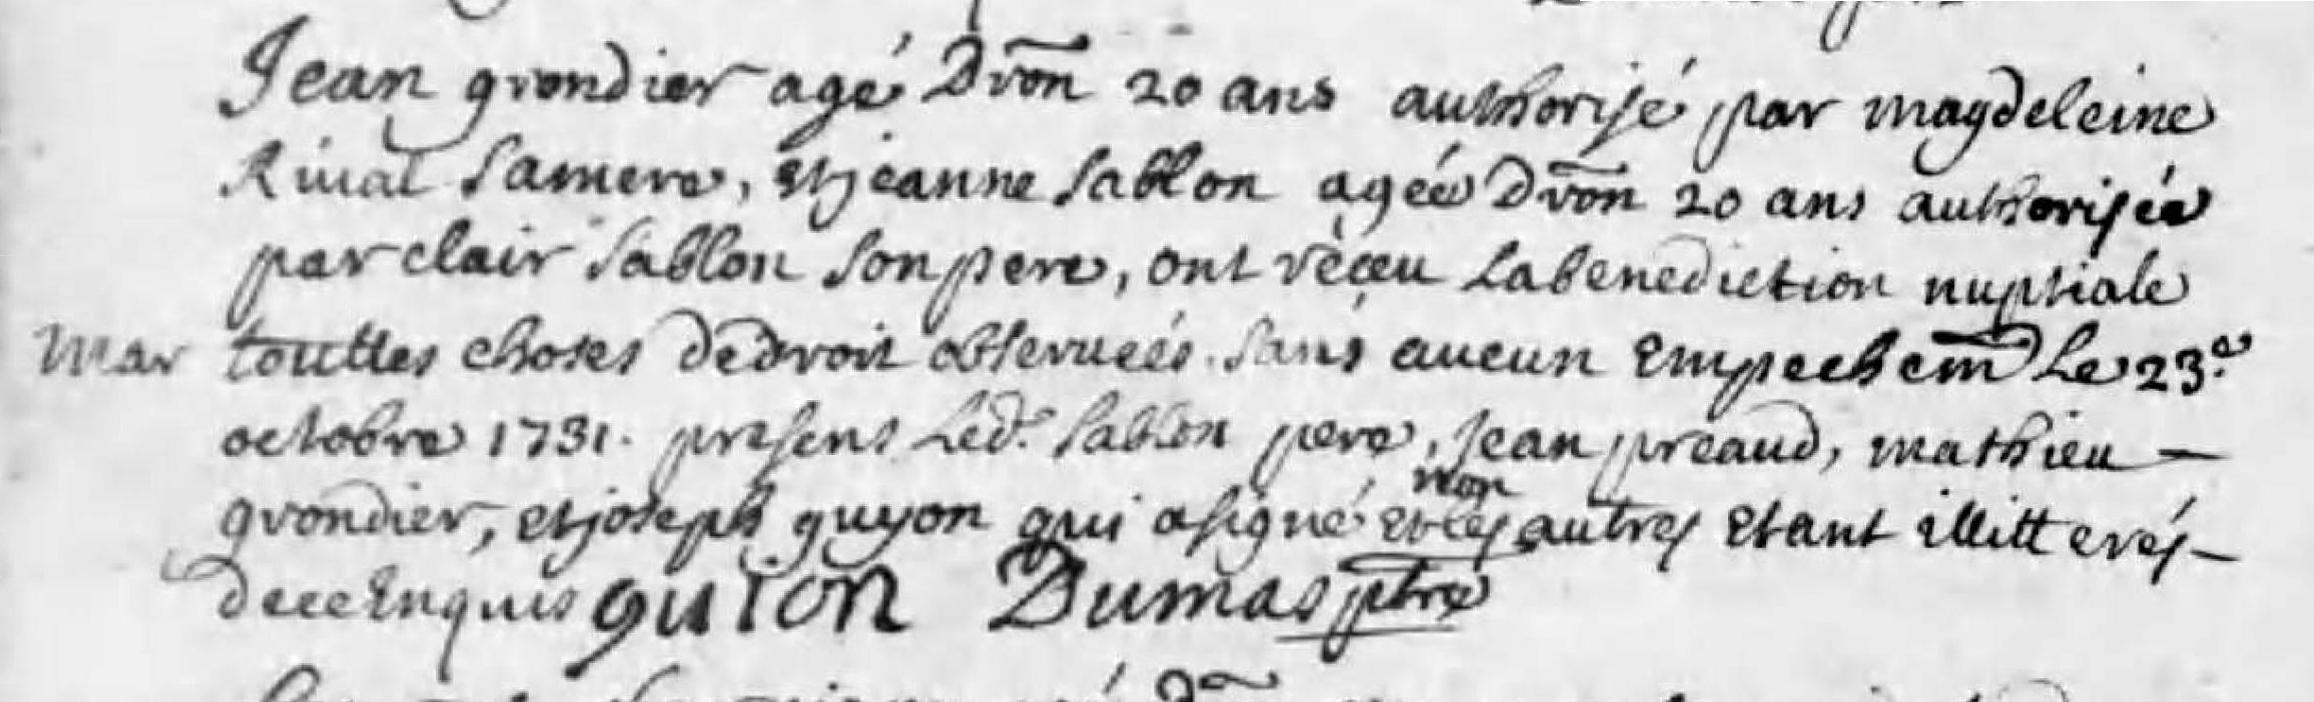 Jean grondier agé Dvõn 20 ans authorisé par magdeleine
Rival Samere, et jeanne Sablon agée Dvõn 20 ans authorisée
par clair Sablon Son pere, ont rèçeu La benediction nuptiale
Mar touttes choses dedroit observeés Sans aucun Empechem̃ Le 23.e
octobre 1731. presens Led. Sablon pere, Jean preaud, mathieu —
grondier, et joseph guyon qui a signé non et les autres Etant illitterés —
dece Enquis guion Dumas ptre